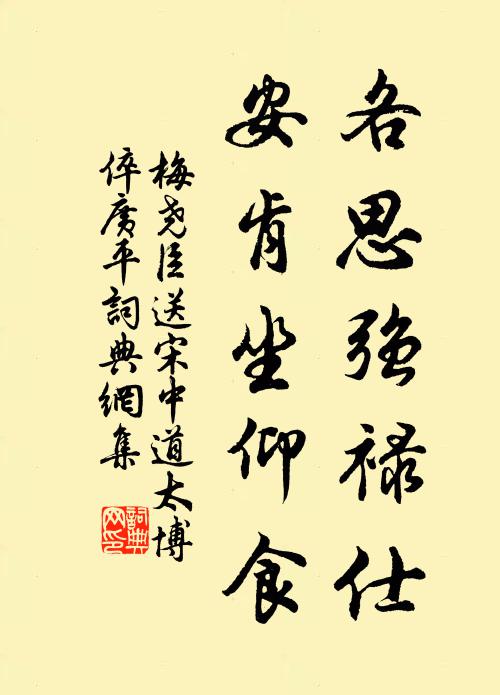 各思强禄仕
安肯坐仰食
梅尧臣送宋中道太博
倅廣平詞典網集
詞典
网印